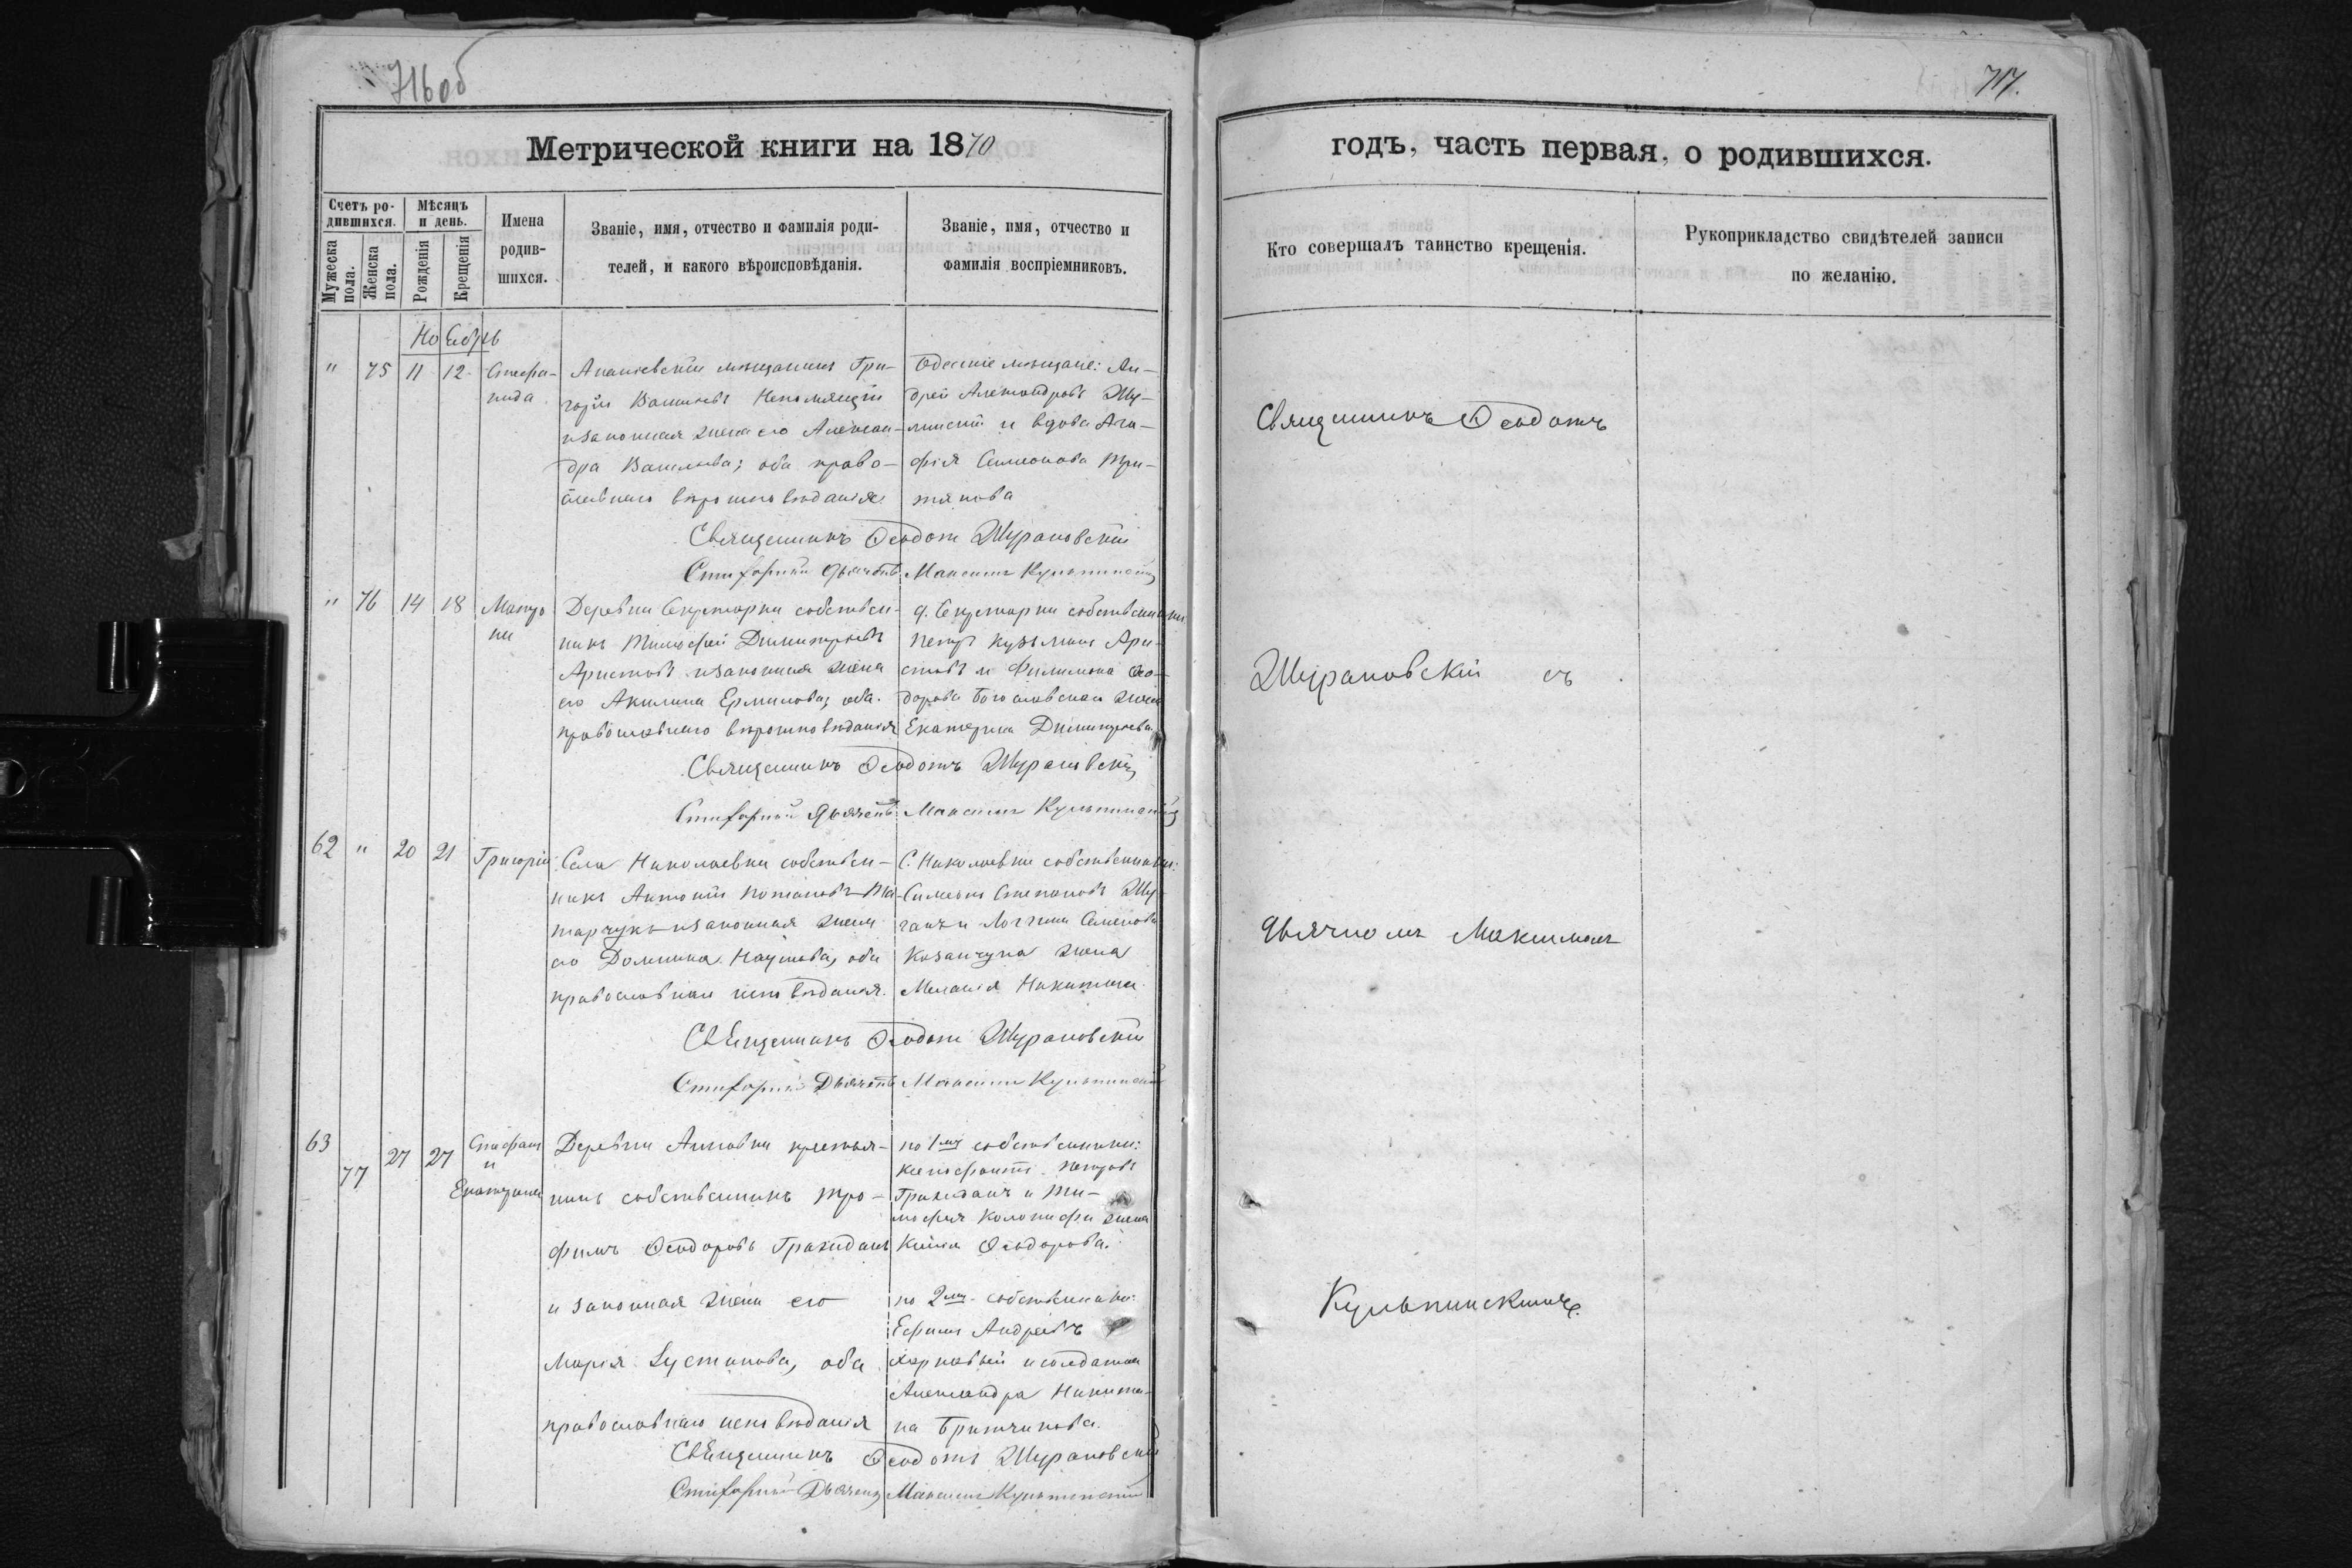 716об
717.
Метрической книги на 1870
годъ, часть первая, о родившихся.
Счетъ ро-
дившихся.
Мѣсяцъ
и день.
Мужеска
пола.
Женска
пола.
Рожденія
Крещенія
Имена
родив-
шихся.
Званіе, имя, отчество и фамилія роди-
телей, и какого вѣроисповѣданія.
Званіе, имя, отчество и
фамилія воспріемниковъ.
Кто совершалъ таинство крещенія.
Рукоприкладство свидѣтелей записи
по желанію.
Ноябрь
" 75 11 12 Стефа-
нида
Ананіевскій мѣщанинъ Гри-
горій Васильевъ Непомящій
и законная жена его Алексан-
дра Васильева; оба право-
славнаго вѣроисповѣданія
Одесскіе мѣщане: Ан-
дрей Александровъ
и вдова Ага-
фія Симеонова
Священникъ Ѳеодотъ Шурановскій
Стихарный дьячекъ Максимъ Кульпинскій
" 76 14 18 Матро
на
Деревни Секретарки собствен-
никъ Тимофей Димитріевъ
Аристовъ и законная жена
его Акилина Ермилова; оба
православнаго вѣроисповѣданія
д. Секретарки собственники
Петръ Кузьминъ Ари-
стовъ и Филимона Ѳео-
дорова жена
Екатерина Димитріева.
Священникъ Ѳеодотъ Шурановскій
Стихарный дьячекъ Максимъ Кульпинскій
62 " 20 21 Григорій
Села Николаевки собствен-
никъ Антоній Потаповъ Та-
тарчукъ и законная жена
его Домника Наумова, оба
православнаго исповѣданія.
С. Николаевки собственники:
Симеонъ Степановъ
и Логгина Семенова
Козачука жена
Меланія Никитина
Священникъ Ѳеодотъ Шурановскій
Стихарный Дьячекъ Максимъ Кульпинскій
63 77 27 27 Стефанъ
и
Екатерина
Деревни Анновки крестья-
нинъ собственникъ Тро-
фимъ Ѳеодоровъ Гражданъ
и законная жена его
Марія Іустинова, оба
православнаго исповѣданія
по 1му собственники:
Ксенофонтъ Петровъ
Гражданъ и Ти-
мофея жена
Ѳеодорова.
по 2му собственники:
Ефимъ Андреевъ
и солдатка
Александра Никити-
на
Священникъ Ѳеодотъ Шурановскій
Стихарный Дьячекъ Максимъ Кульпинскій
Священникъ Ѳеодотъ
Шурановскій съ
дьячкомъ Максимомъ
Кульпинскимъ.